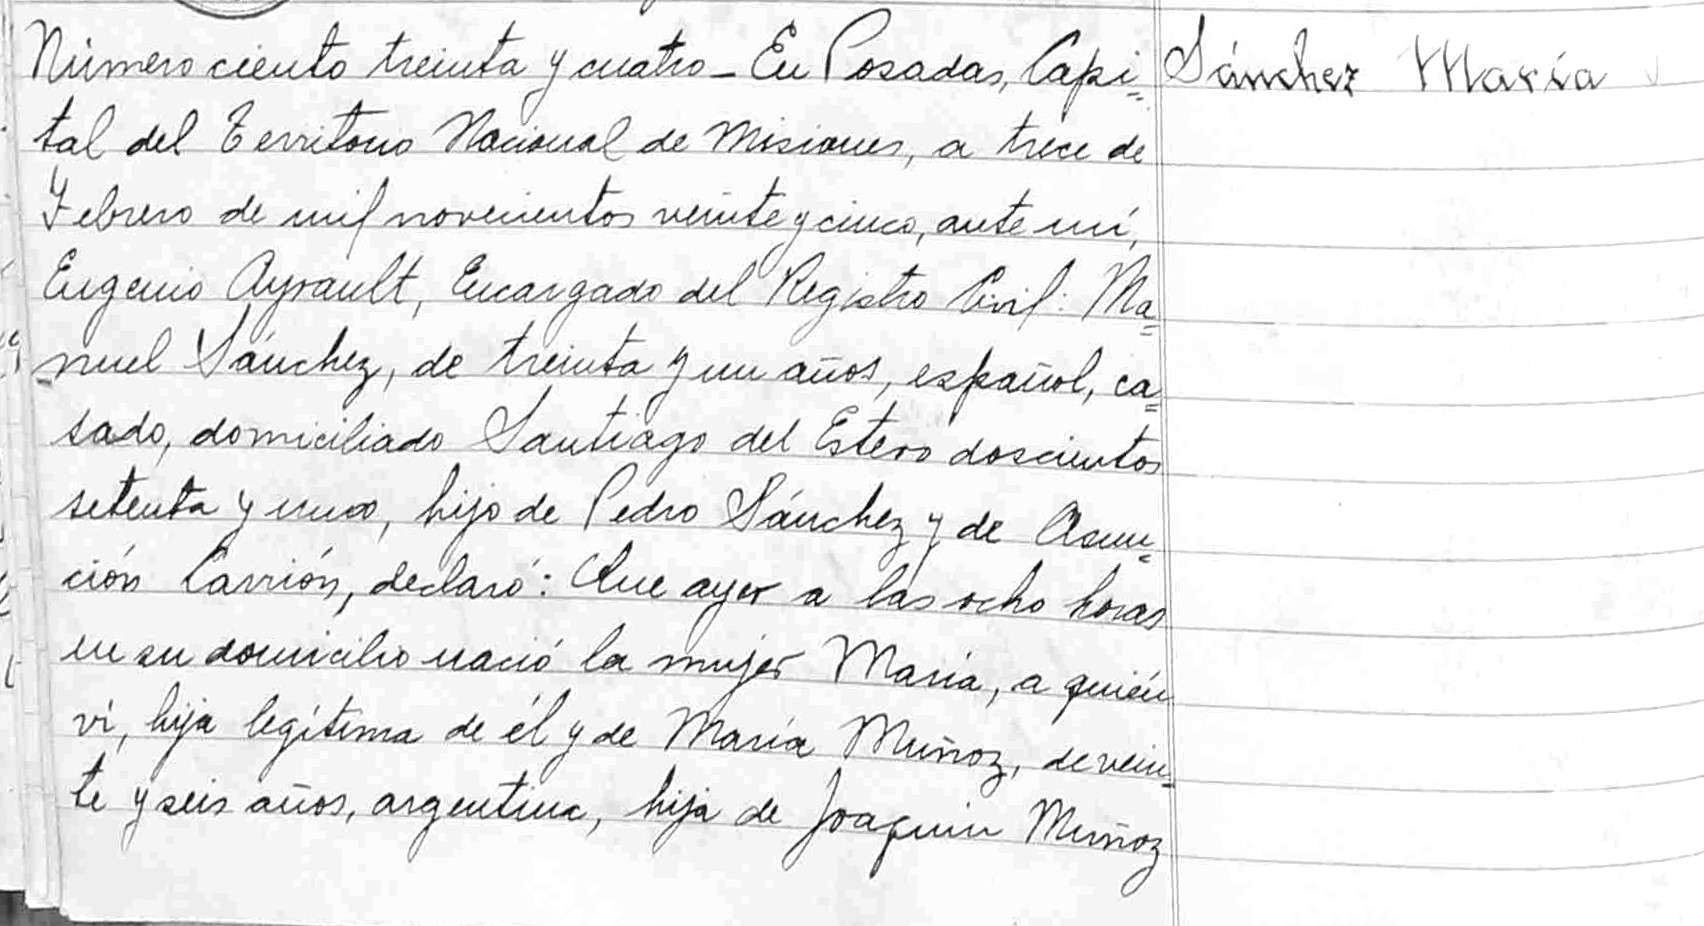 Número ciento treinta y cuatro - En Posadas, Capi=
Sánchez María
tal del Territorio Nacional de Misiones, a trece de
Febrero de mil novecientos veinte y cinco, ante mí,
Eugenio Ayrault, Encargado del Registro Civil: Ma=
nuel Sánchez, de treinta y un años, español, ca=
sado, domiciliado Santiago del Estero doscientos
setenta y uno, hijo de Pedro Sánchez y de Asun=
ción Carrión, declaró: Que ayer a las ocho horas
en su domicilio nació la mujer María, a quién
ví, hija legítima de él y de María Muñoz, de vein=
te y seis años, argentina, hija de Joaquin Muñoz